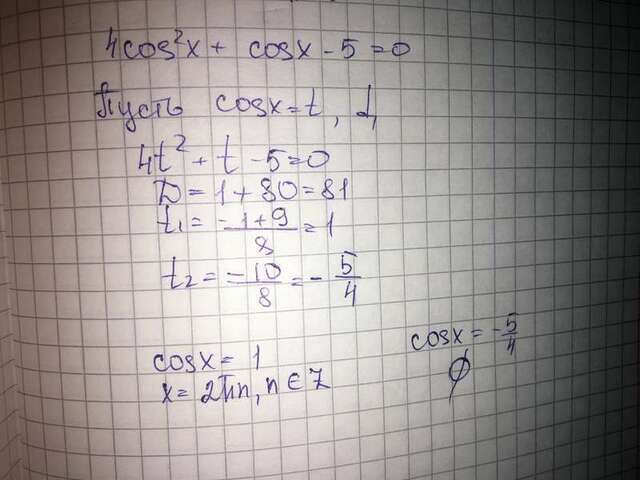 4cos²x + cosx - 5 = 0
Пусть cosx = t,
4t² + t - 5 = 0
D = 1 + 80 = 81
t₁ = (-1+9)/8 = 1
t₂ = -10/8 = -5/4
cosx = 1
cosx = -5/4
x = 2πn, n ∈ Z
∅